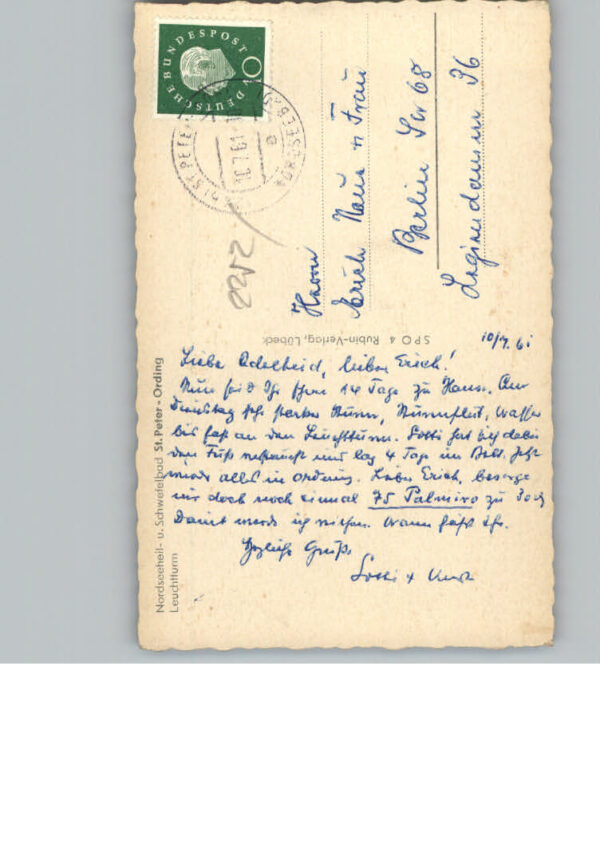 DEUTSCHE BUNDESPOST
10
ST. PETER
10.7.61
NORDSEEBAD
Herrn
Erich Naus u Frau
Berlin SW 68
36
SPO 4 Rubin-Verlag, Lübeck
Nordseeheil- u. Schwefelbad St. Peter-Ording
Leuchtturm
10/7. 61
Liebe Adelheid, lieber Erich!
Nun seid Ihr schon 14 Tage zu Hause. Am
Dienstag sehr starker Sturm, Sturmflut, Wasser
bis fast an den Leuchtturm. Lotti hat sich dabei
den Fuß verstaucht und lag 4 Tage im Bett. Jetzt
wieder alles in Ordnung. Lieber Erich, besorge
mir doch noch einmal 75 Palmiro zu
Damit werde ich reichen. Wann fahrt Ihr.
Herzliche Grüße
Lotti +